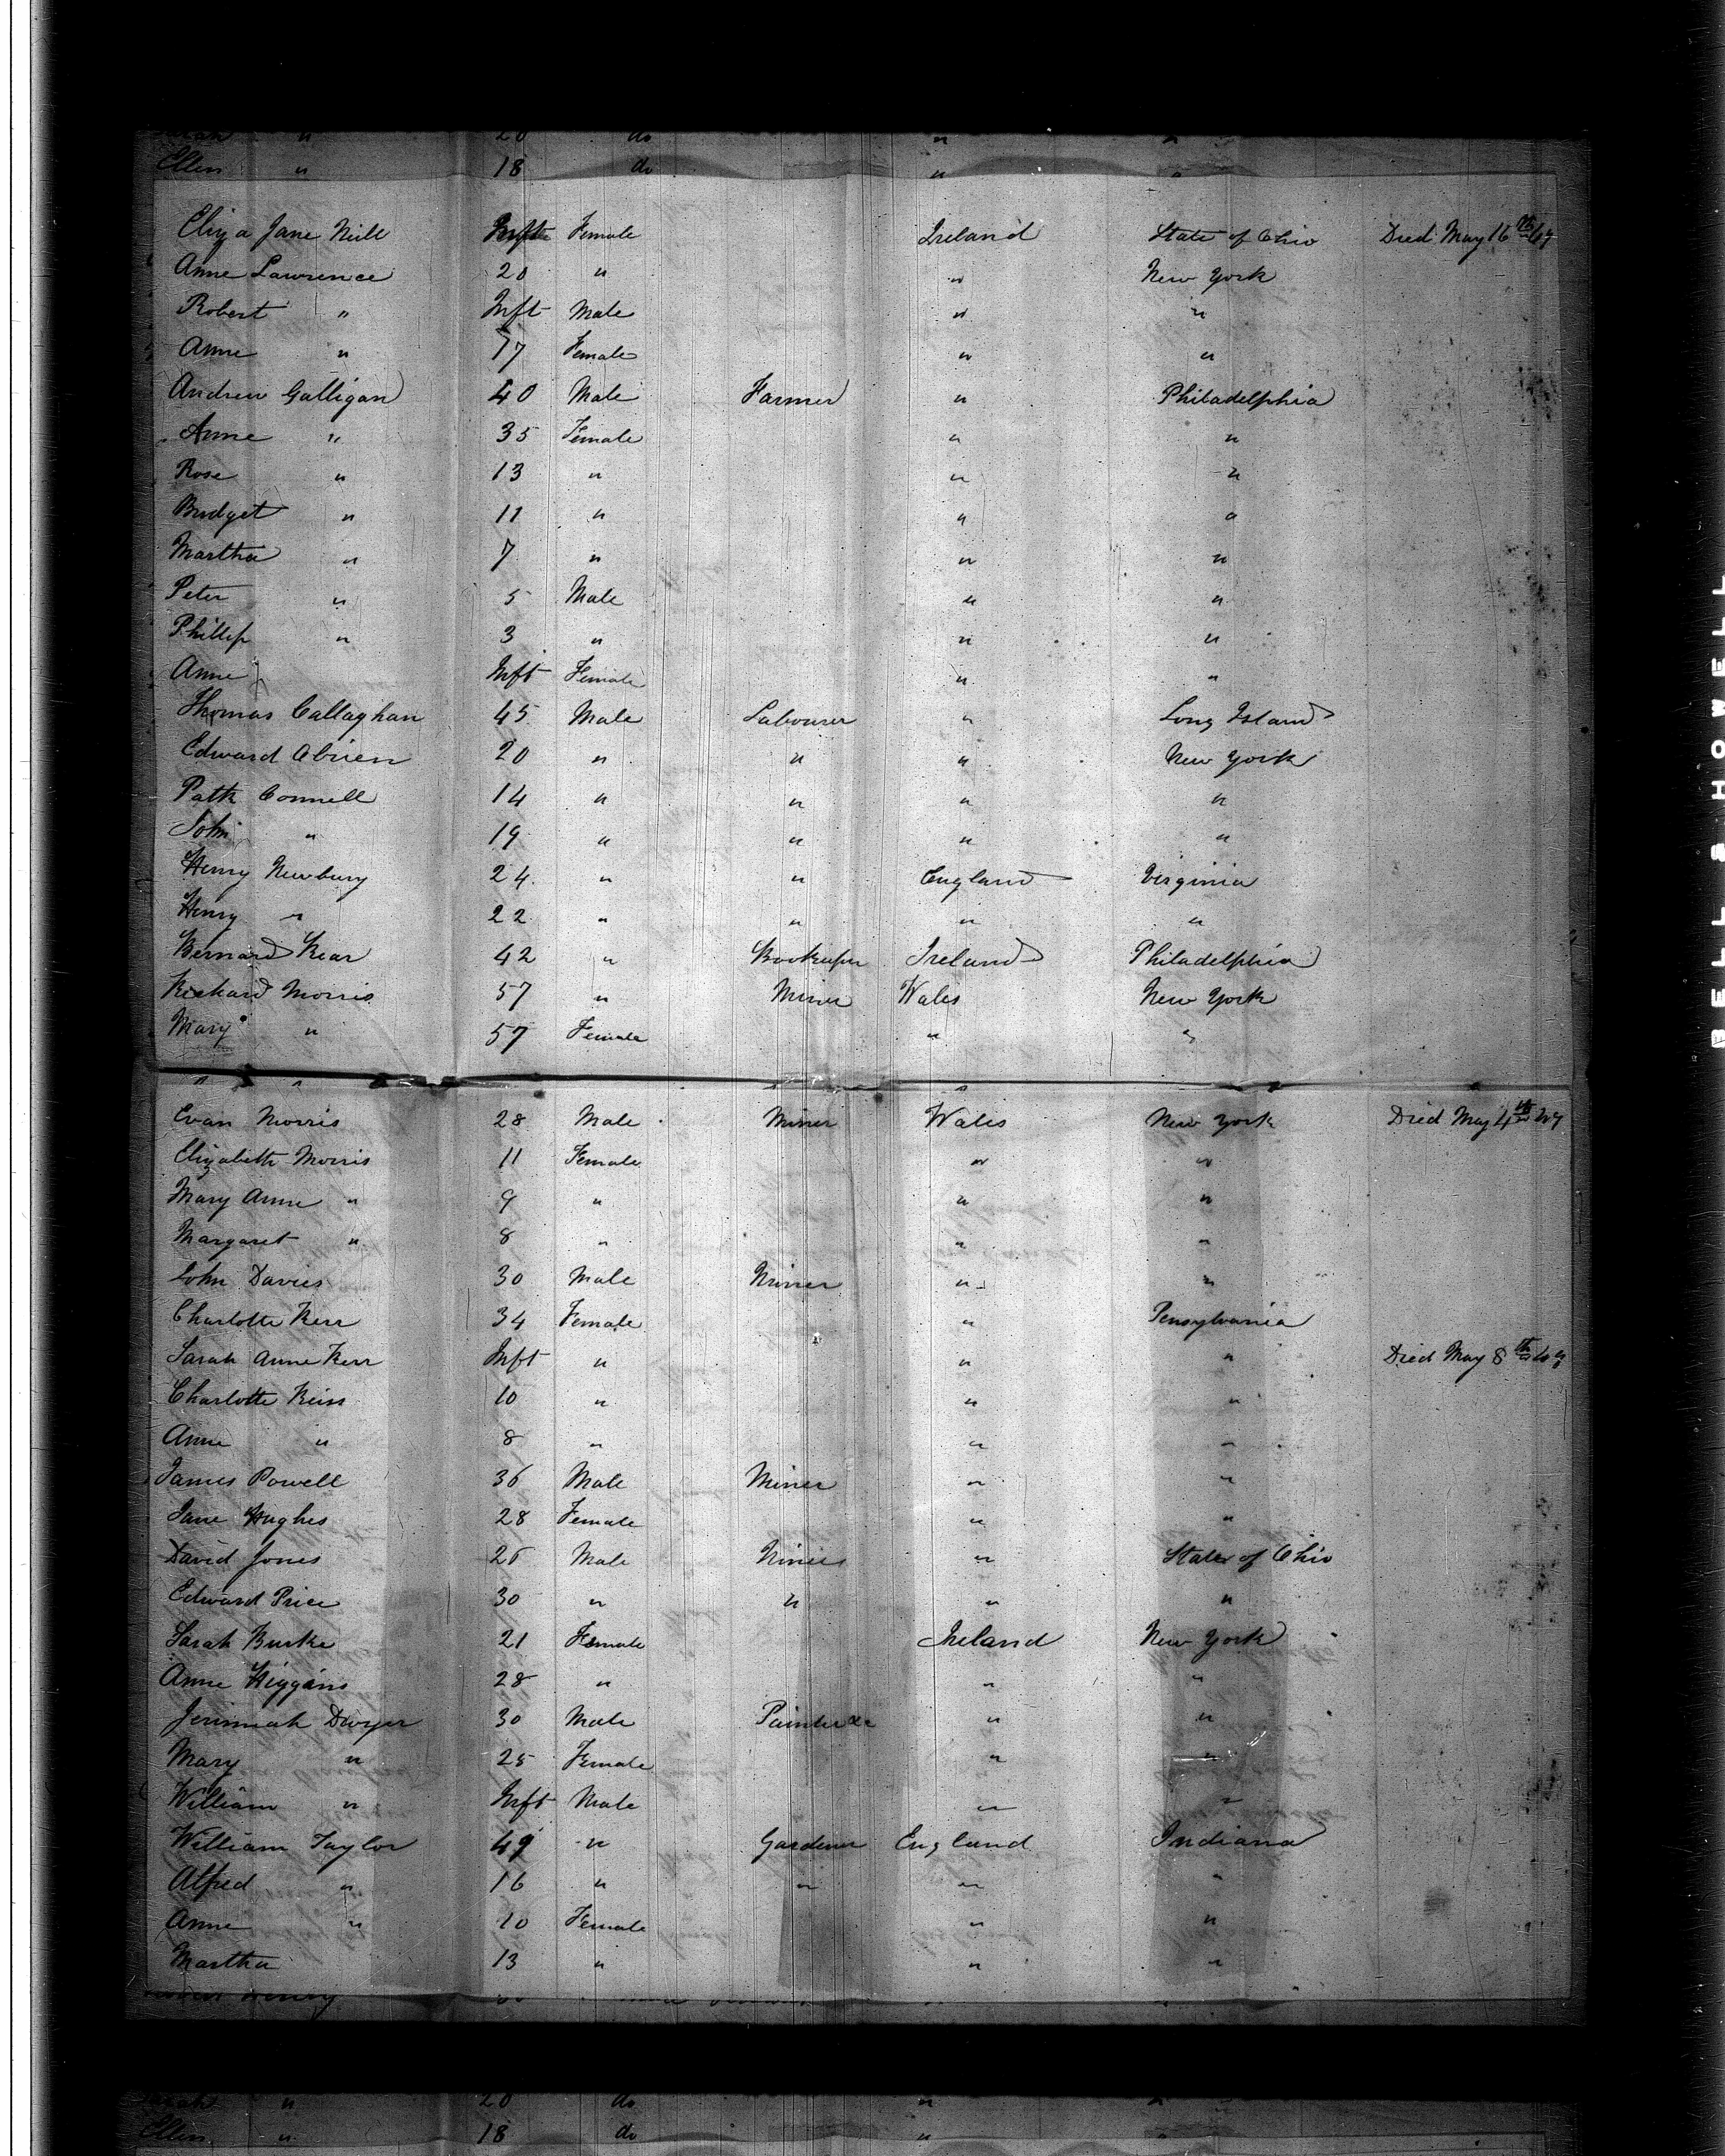 Sarah " 20 do " "
Ellen " 18 do " "
Eliza Jane Neill Inft Female Ireland State of Ohio Died May 16th 49
Anne Lawrence 20 " " New York
Robert " Inft Male " "
Anne " 17 Female " "
Andrew Galligan 40 Male Farmer " Philadelphia
Anne " 35 Female " "
Rose " 13 " " "
Bridget " 11 " " "
Martha " 7 " " "
Peter " 5 Male " "
Phillip " 3 " " "
Anne Inft Female " "
Thomas Callaghan 45 Male Labourer " Long Island
Edward Obrien 20 " " " New York
Patk Connell 14 " " " "
John " 19 " " " "
Henry Newbury 24 " " England Virginia
Henry " 22 " " " "
Bernard Kear 42 " Bookeeper Ireland Philadelphia
Richard Morris 57 " Miner Wales New York
Mary " 57 Female " "
Evan Morris 28 Male Miner Wales New York Died May 4th 49
Elizabeth Morris 11 Female " "
Mary Anne " 9 " " "
Margaret " 8 " " "
John Davies 30 Male Miner " "
Charlotte Kerr 34 Female " Pensylvania
Sarah Anne Kerr Inft " " " Died May 8th 49
Charlotte 10 " " "
Anne " 8 " " "
James Powell 36 Male Miner " "
Jane Hughes 28 Female " "
David Jones 26 Male Miner " State of Ohio
Edward Price 30 " " " "
Sarah Burke 21 Female Ireland New York
Anne Higgins 28 " " "
Jerimiah Dwyer 30 Male Painter &c " "
Mary " 25 Female " "
William " Inft Male " "
William Taylor 49 " Gardener England Indiana
Alfred " 16 " " " "
Anne " 10 Female " "
Martha 13 " " "
Henry
Sarah " 20 do " "
Ellen " 18 do " "